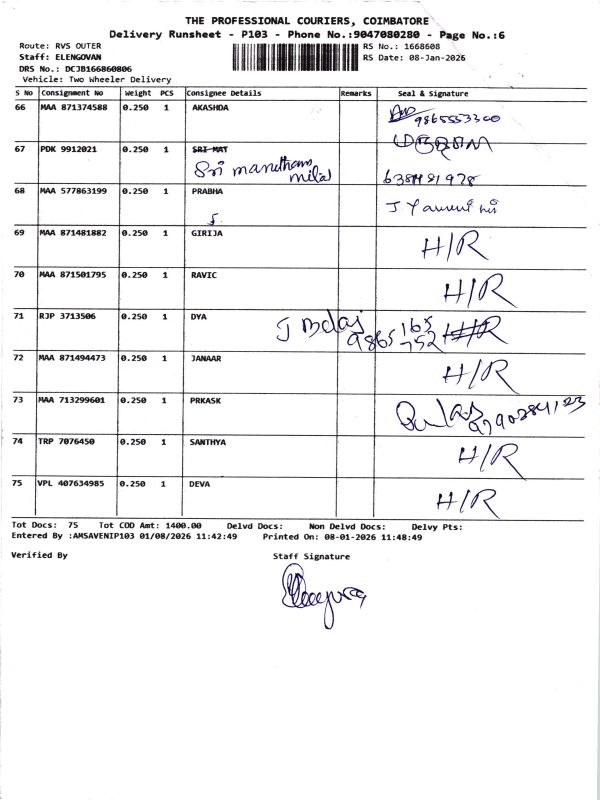 THE PROFESSIONAL COURIERS, COIMBATORE
Delivery Runsheet - P103 - Phone No.:9047080280 - Page No.:6
Route: RVS OUTER RS No.: 1668608
Staff: ELENGOVAN RS Date: 08-Jan-2026
DRS No.: DCJB166860806
Vehicle: Two Wheeler Delivery
S No Consignment No Weight PCS Consignee Details Remarks Seal & Signature
66 MAA 871374588 0.250 1 AKASHDA
9865553300
67 PDK 9912021 0.250 1 SRI MAT
Sri
638
68 MAA 577863199 0.250 1 PRABHA
J
69 MAA 871481882 0.250 1 GIRIJA H/R
70 MAA 871501795 0.250 1 RAVIC H/R
71 RJP 3713506 0.250 1 DYA J 9865 165 752 H/R
72 MAA 871494473 0.250 1 JANAAR H/R
73 MAA 713299601 0.250 1 PRKASK
74 TRP 7076450 0.250 1 SANTHYA H/R
75 VPL 407634985 0.250 1 DEVA H/R
Tot Docs: 75 Tot COD Amt: 1400.00 Delvd Docs: Non Delvd Docs: Delvy Pts:
Entered By :AMSAVENIP103 01/08/2026 11:42:49 Printed On: 08-01-2026 11:48:49
Verified By Staff Signature